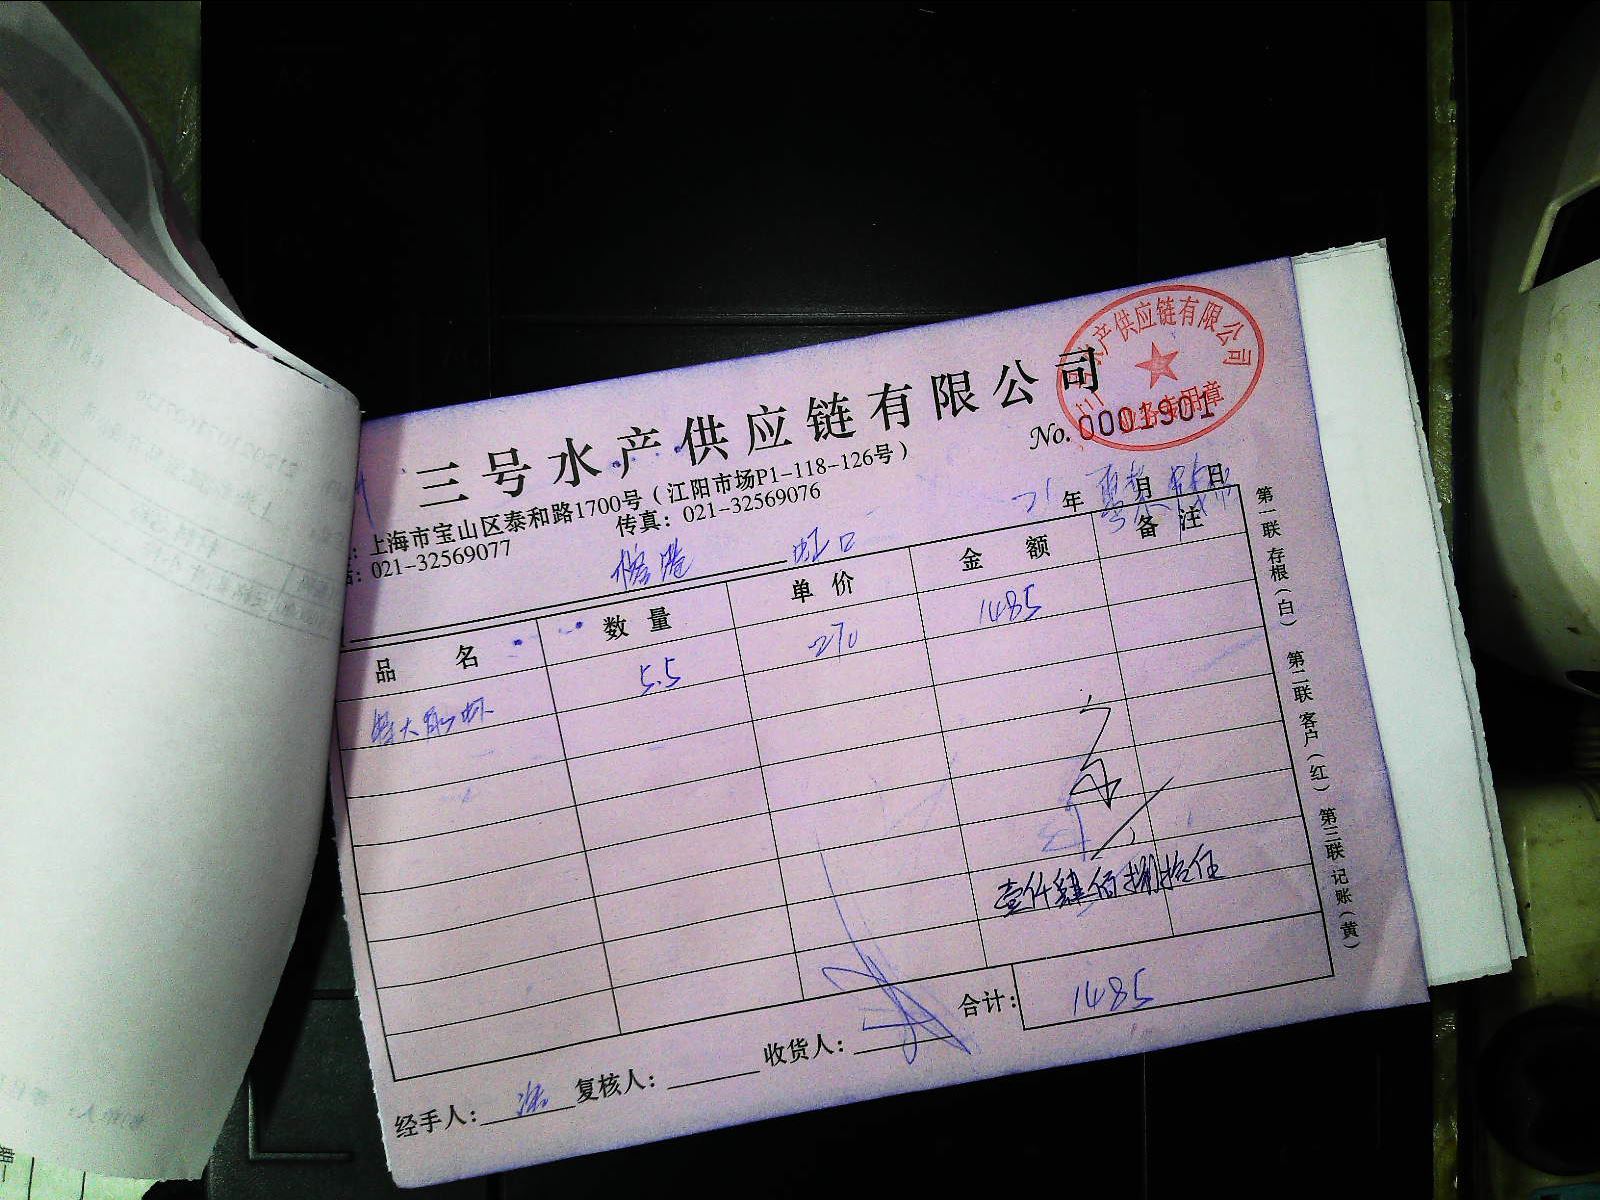 三号水产供应链有限公司
水产供应链有限公司
业务专用章
No. 0001901
：上海市宝山区泰和路1700号（江阳市场P1-118-126号）
话：021-32569077 传真：021-32569076
21年 月 日
虹口
品名 数量 单价 金额 备注
特大 虾 5.5 270 1485
壹仟肆佰捌拾伍
合计： 1485
经手人： 复核人： 收货人：
第一联 存根（白） 第二联 客户（红） 第三联 记账（黄）